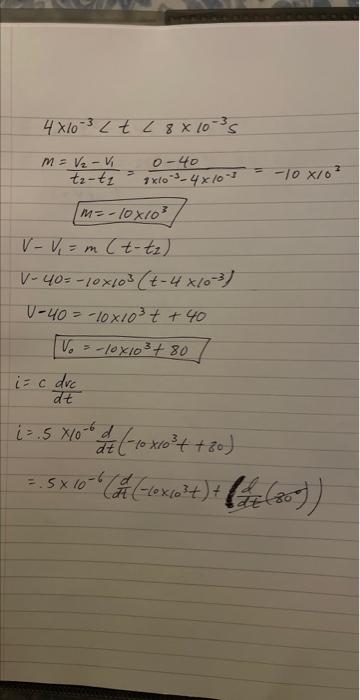 4 x 10⁻³ < t < 8 x 10⁻³ s
m = V₂ - V₁ / t₂ - t₁ = 0 - 40 / 8x10⁻³ - 4x10⁻³ = -10 x10³
m = -10x10³
V - V₁ = m (t - t₁)
V - 40 = -10x10³ (t - 4 x10⁻³)
V - 40 = -10x10³t + 40
V₀ = -10x10³t 80
i = c dvc / dt
i = .5 x10⁻⁶ d/dt (-10 x10³t + 80)
= .5 x 10⁻⁶ (d/dt (-10x10³t) + (d/dt (80)⁰))